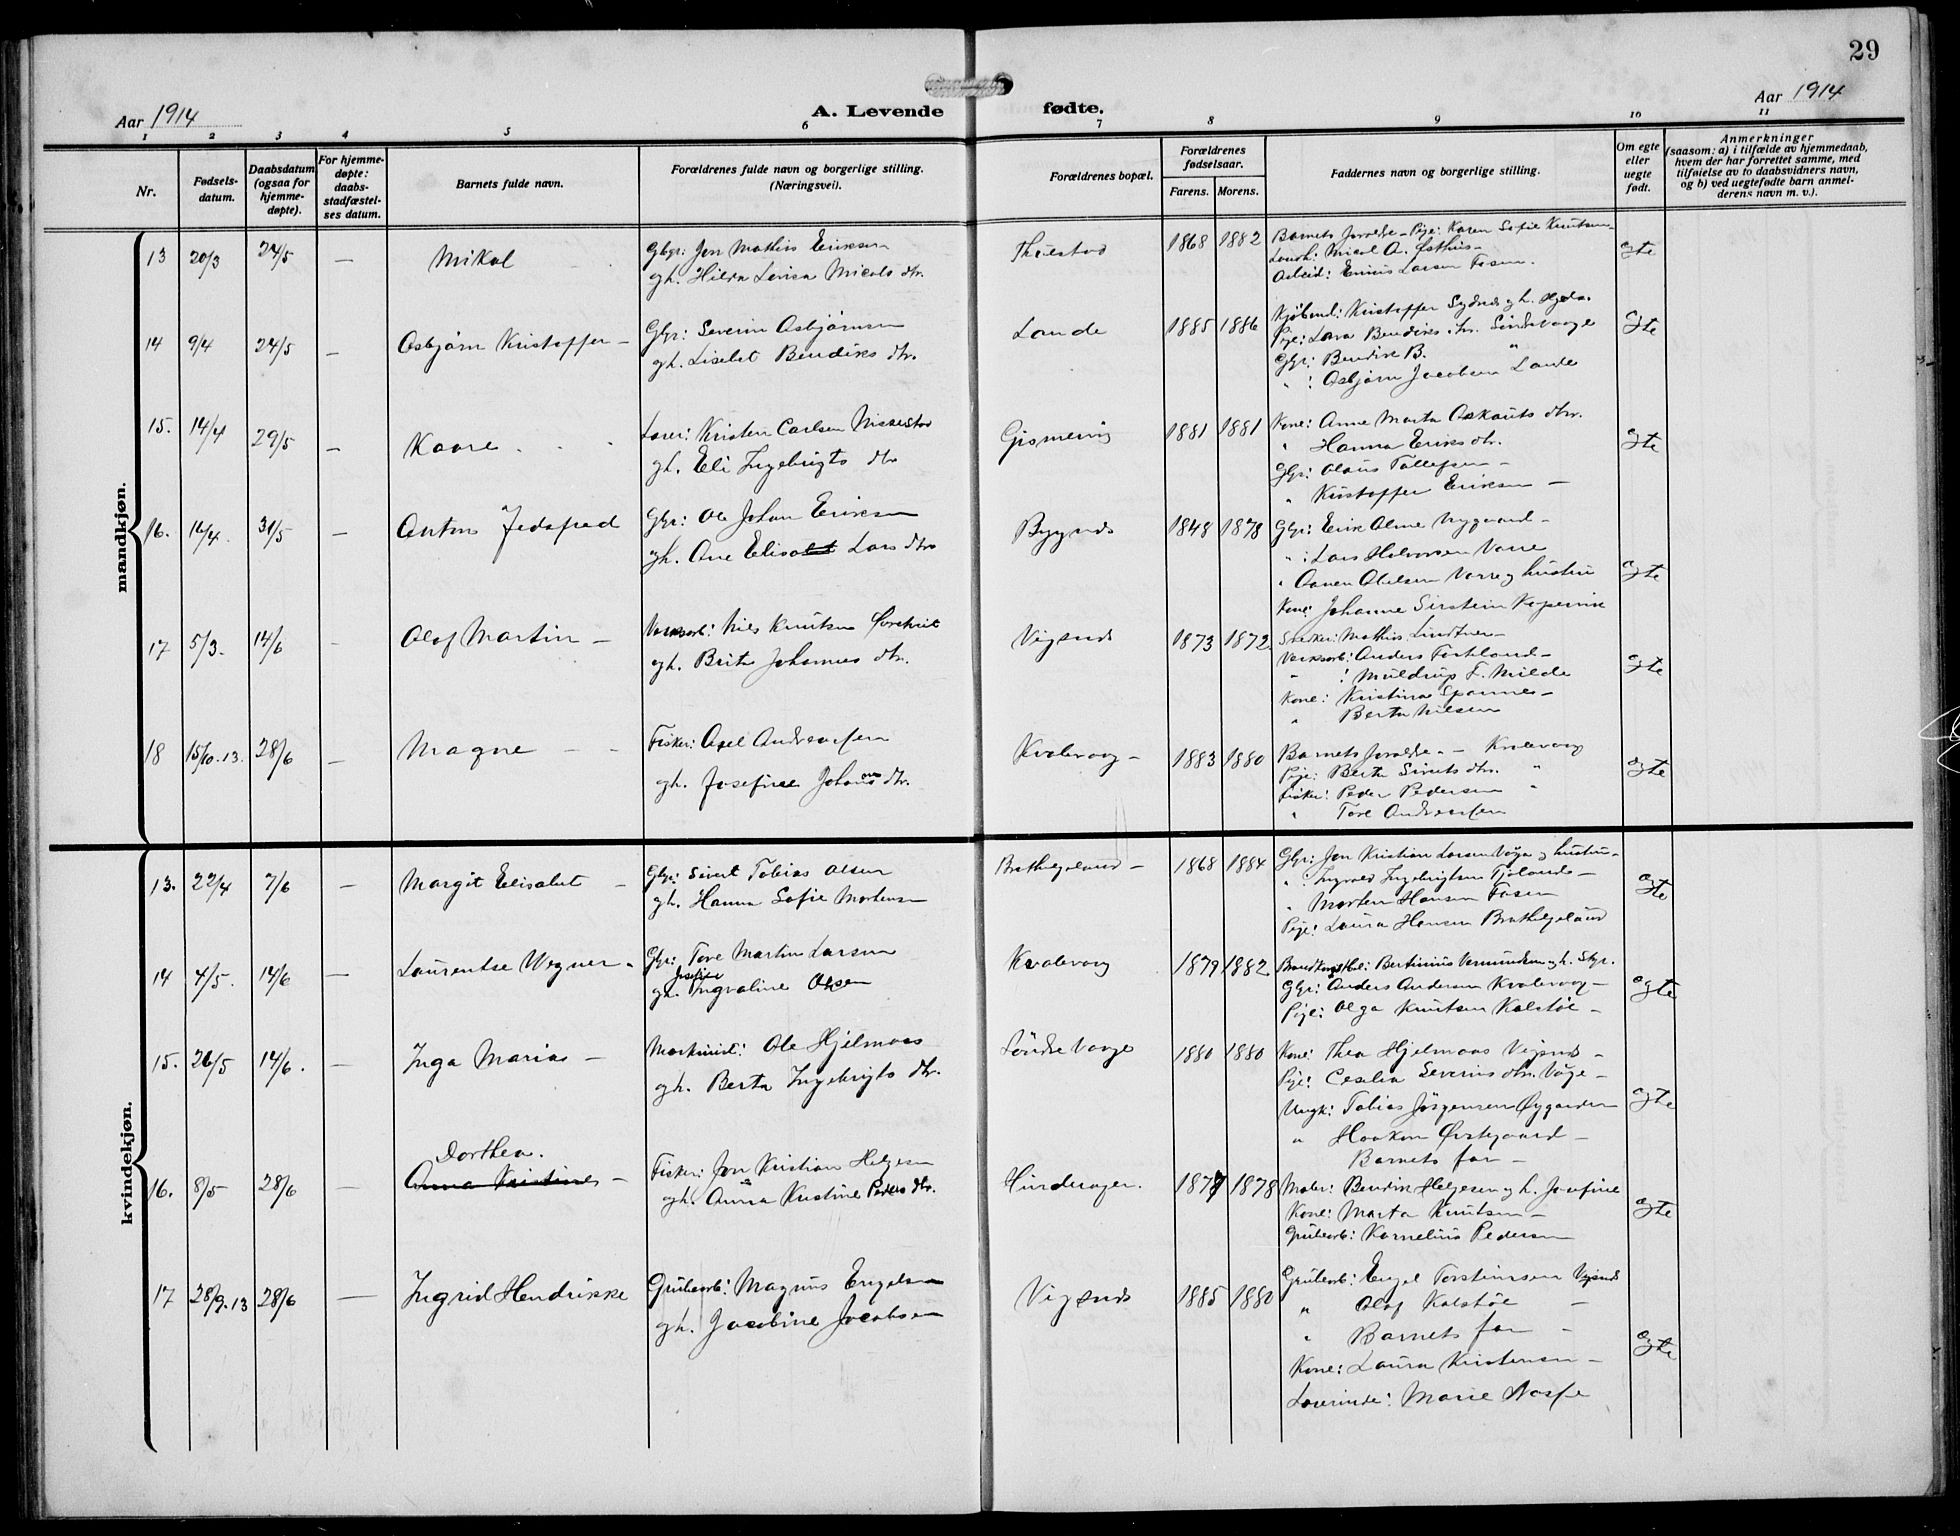 29
Aar 1914
A. Levende fødte.
Aar 1914
1 2 3 4 5 6 7 8 9 10 11
Nr.
Fødsels-
datum.
Daabsdatum
(ogsaa for
hjemme-
døpte).
For hjemme-
døpte:
daabs-
stadfæstel-
ses datum.
Barnets fulde navn.
Forældrenes fulde navn og borgerlige stilling.
(Næringsvei).
Forældrenes bopæl.
Forældrenes
fødselsaar.
Farens. Morens.
Faddernes navn og borgerlige stilling.
Om egte
eller
uegte
født.
Anmerkninger
(saasom: a) i tilfælde av hjemmedaab,
hvem der har forrettet samme, med
tilføielse av to daabsvidners navn,
og b) ved uegtefødte barn anmel-
derens navn m. v.).
mandkjøn.
13 20/3 24/5 — Mikal
Gbgr: Jon Mathias Eriksen
gh. Hilda Lovisa Micals dtr.
1868 1882
Barnets foreldre – Pige: Karen Sofie Knutsen
Landh: Mical A. Østhus –
Arbeid: Ennis Larsen Fosen.
egte
14 9/4 24/5 — Osbjørn Kristoffer –
Gbgr: Severin Osbjørnsen
gh. Liselet Bendiks dtr.
Lande
1885 1886
Kjøbmd: Kristoffer Sydnes og h.
Pige: Lara Bendiks dtr. Söndre Vaage
Gbgr: Bendik B. "
" : Osbjørn Jacobsen Lande
egte
15. 14/4 29/5 — Kaare
Lærer: Kristen Carlsen
gh. Eli Ingebrigts dtr
Gismervig
1881 1881
Kone: Anne Marta Askauts dtr.
" Hanna Eriks dtr.
Gbgr: Olaus Tollefsen –
" Kristoffer Eriksen –
egte
16. 16/4. 31/5 — Anton Jedsfred
Gbgr: Ole Johan Eriksen
gh. Ane Elisabet Lars dtr
Bygnes
1848 1878
Gbgr: Erik Olme Nygaard –
" : Lars Halvorsen Vorre
" Aanen Abelsen Vorre og hustru
Kone: Johanne Sirstein Kopervik
egte
17 5/3. 14/6 — Olaf Martin –
Verksarb: Nils Knutsen
gh. Brita Johannes dtr.
Vigsnes
1873 1872.
Snedker: Mathias Lindtner –
Verksarb: Anders Forkland –
" : Muldrup F. Milde
Kone: Kristina Spannes –
" Berta Nilsen
egte
18 15/10. 13. 28/6 — Magne – –
Fisker: Axel Andreassen
gh. Josefine Johans dtr.
Kvalevaag –
1883 1880
Barnets foreldre. – Kvalevaag
Pige: Berta Sivets dtr. "
Fisker: Peder Pedersen "
" Tore Andreassen
egte
kvindekjøn.
13. 22/4 7/6 — Margit Elisabet –
Gbgr: Sivert Tobias Olsen
gh. Hanna Sofie Mortensen
Brathelgeland –
1868 1884
Gbgr: Jon Kristian Larsen Våga og hustru –
" : Ingvald Ingebrigtsen Tjoland –
" Morten Hansen Fosen
Pige: Laura Hansen Brathelgeland
egte
14 4/5. 14/6 — Laurentse Wegner –
Gbgr: Tore Martin Larsen
Josefine
gh. Ingvaline Olsen
Kvalevaag
1879 1882
Bertinius Vermundsen og h. Styr.
Gbgr: Anders Andersen Kvalevaag –
Pige: Olga Knutsen Kalstöe –
egte
15. 26/5 14/6. — Inga Marias –
Maskinist: Ole Hjelmaas
gh. Berta Ingebrigts dtr.
Söndre Vaage
1880 1880
Kone: Thea Hjelmaas Vigsnes –
Pige: Cesilia Severins dtr. Våge –
Ungk: Tobias Jörgensen Øygarden
" Haakon Øvstegaard –
Barnets far –
egte
16. 8/5 28/6 — Dorthea.
Anna Kristine –
Fisker: Jon Kristian Helgesen
gh. Anna Kristine Peders dtr.
Hinderager.
1877 1878
Maler: Bendik Helgesen og h. Josefine
Kone: Marta Knutsen –
Grubearb: Kornelius Pedersen
egte
17 28/9. 13 28/6 — Ingrid Hendrikke
Grubearb: Magnus Engelsen
gh. Jacobine Jacobsen
Vigsnes
1885 1880
Grubearb: Engel Torstensen Vigsnes
" Olaf Kalstöe –
" Barnets far –
Kone: Laura Kristensen –
Lærerinde: Marie Aasse
egte